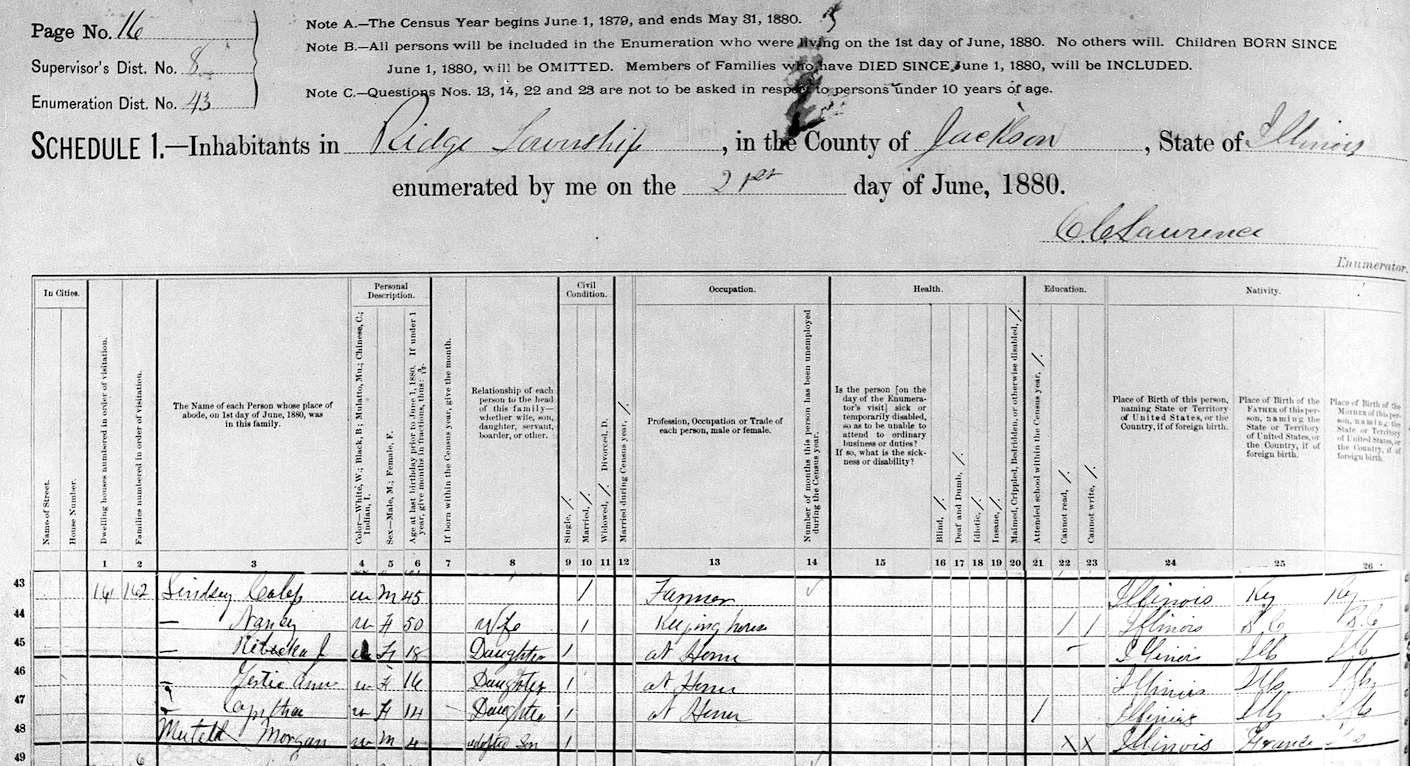 Page No. 16
Supervisor's Dist. No. 8
Enumeration Dist. No. 43
Note A.—The Census Year begins June 1, 1879, and ends May 31, 1880.
Note B.—All persons will be included in the Enumeration who were living on the 1st day of June, 1880. No others will. Children BORN SINCE
June 1, 1880, will be OMITTED. Members of Families who have DIED SINCE June 1, 1880, will be INCLUDED.
Note C.—Questions Nos. 13, 14, 22 and 23 are not to be asked in respect to persons under 10 years of age.
SCHEDULE 1.—Inhabitants in Ridge Township, in the County of Jackson, State of Illinois
enumerated by me on the 21st day of June, 1880.
C C Lawrence
Enumerator.
In Cities.
Name of Street.
House Number.
Dwelling houses numbered in order of visitation.
Families numbered in order of visitation.
The Name of each Person whose place of
abode, on 1st day of June, 1880, was
in this family.
Personal
Description.
Color—White, W.; Black, B.; Mulatto, Mu.; Chinese, C.;
Indian, I.
Sex—Male, M.; Female, F.
Age at last birthday prior to June 1, 1880. If under 1
year, give months in fractions, thus:
If born within the Census year, give the month.
Relationship of each
person to the head
of this family—
whether wife, son,
daughter, servant,
boarder, or other.
Civil
Condition.
Single, /.
Married, /.
Widowed, /. Divorced, D.
Married during Census year, /.
Occupation.
Profession, Occupation or Trade of
each person, male or female.
Number of months this person has been unemployed
during the Census year.
Health.
Is the person [on the
day of the Enumera-
tor's visit] sick or
temporarily disabled,
so as to be unable to
attend to ordinary
business or duties?
If so, what is the sick-
ness or disability?
Blind, /.
Deaf and Dumb, /.
Idiotic, /.
Insane, /.
Maimed, Crippled, Bedridden, or otherwise disabled, /.
Education.
Attended school within the Census year, /.
Cannot read, /.
Cannot write, /.
Nativity.
Place of Birth of this person,
naming State or Territory
of United States, or the
Country, if of foreign birth.
Place of Birth of the
FATHER of this per-
son, naming the
State or Territory
of United States, or
the Country, if of
foreign birth.
Place of Birth of the
MOTHER of this per-
son, naming the
State or Territory
of United States, or
the Country, if of
foreign birth.
1 2 3 4 5 6 7 8 9 10 11 12 13 14 15 16 17 18 19 20 21 22 23 24 25 26
43 161 162 Lindsey Caleb w M 45 / Farmer Illinois Ky Ky
44 — Nancy w F 50 Wife / Keeping house / / Illinois
45 — Rebecka J F 18 Daughter / at Home Illinois Ills Ills
46 — Ann w F 16 Daughter / at Home Illinois Ills Ills
47 w F 14 Daughter / at Home / Illinois Ills Ills
48 Morgan w M 4 adopted Son / X X Illinois France
49